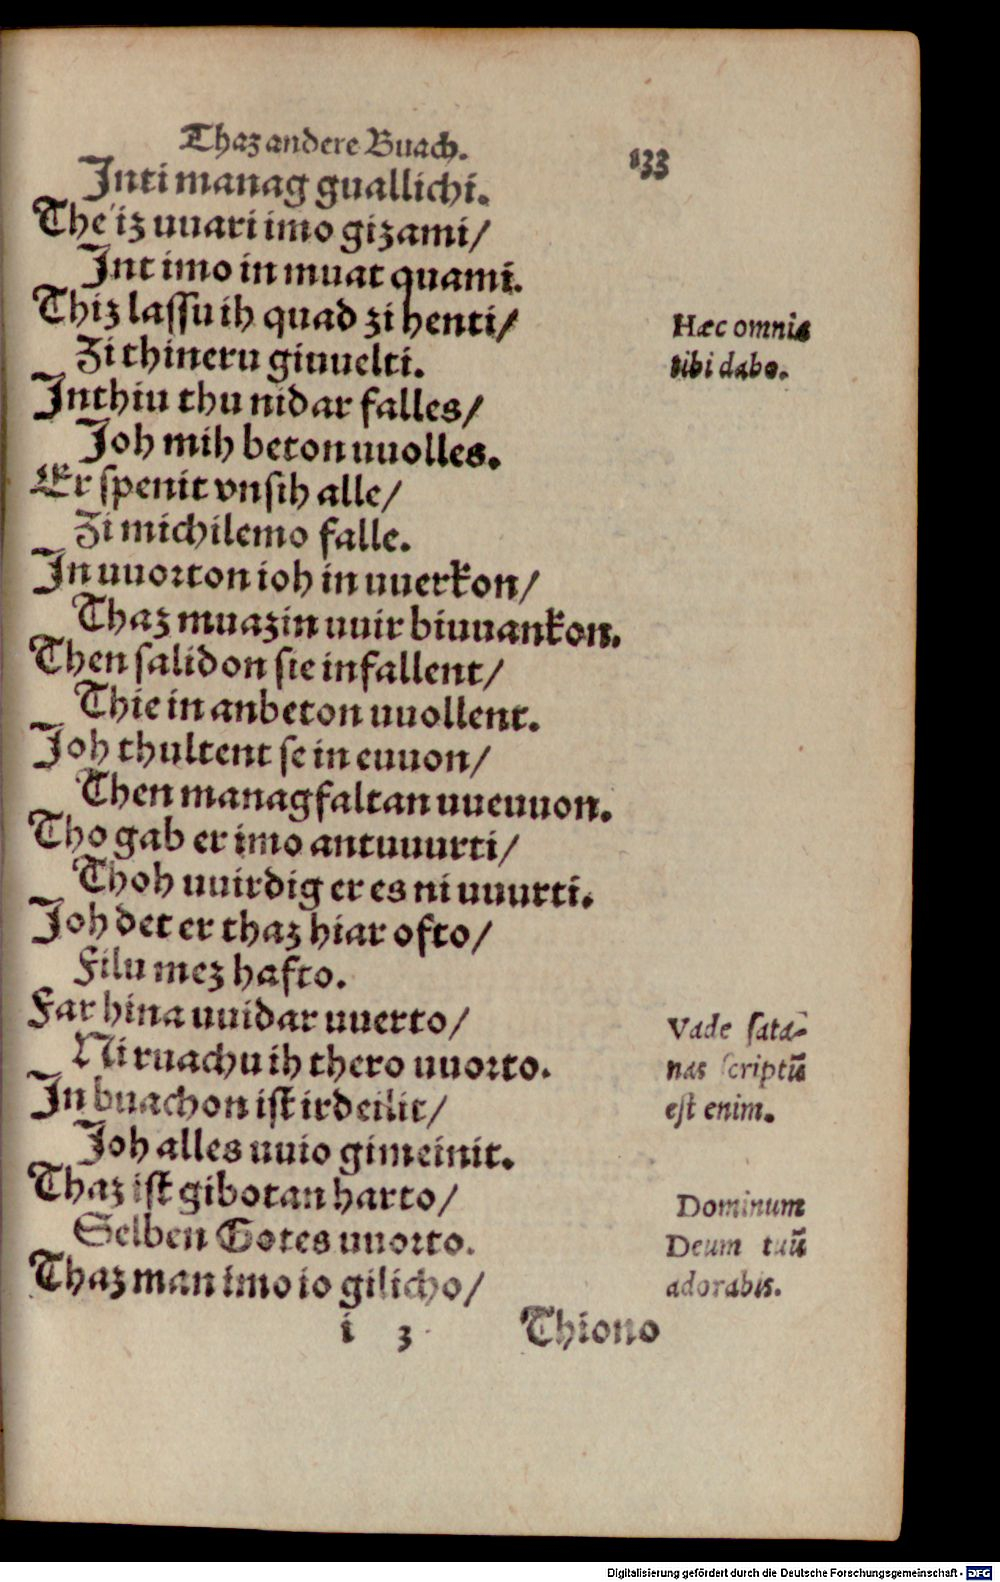 Thaz andere Buach.
133
Inti manag guallichi.
The iz uuari imo gizami/
Int imo in muat quami.
Thiz lassu ih quad zi henti/
Hæc omnia
Zi thineru giuuelti.
tibi dabo.
Inthiu thu nidar falles/
Joh mih beton uuolles.
Er spenit vnsih alle/
Zi michilemo falle.
In uuorton ioh in uuerkon/
Thaz muazin uuir biuuankon.
Then salidon sie infallent/
Thie in anbeton uuollent.
Joh thultent se in euuon/
Then managfaltan uueuuon.
Tho gab er imo antuuurti/
Thoh uuirdig er es ni uuurti.
Joh det er thaz hiar ofto/
Filu mez hafto.
Far hina uuidar uuerto/
Vade sata-
Ni ruachu ih thero uuorto.
nas scriptū
In buachon ist irdeilit/
est enim.
Joh alles uuio gimeinit.
Thaz ist gibotan harto/
Dominum
Selben Gotes uuorto.
Deum tuū
Thaz man imo io gilicho/
adorabis.
i 3 Thiono
Digitalisierung gefördert durch die Deutsche Forschungsgemeinschaft - DFG